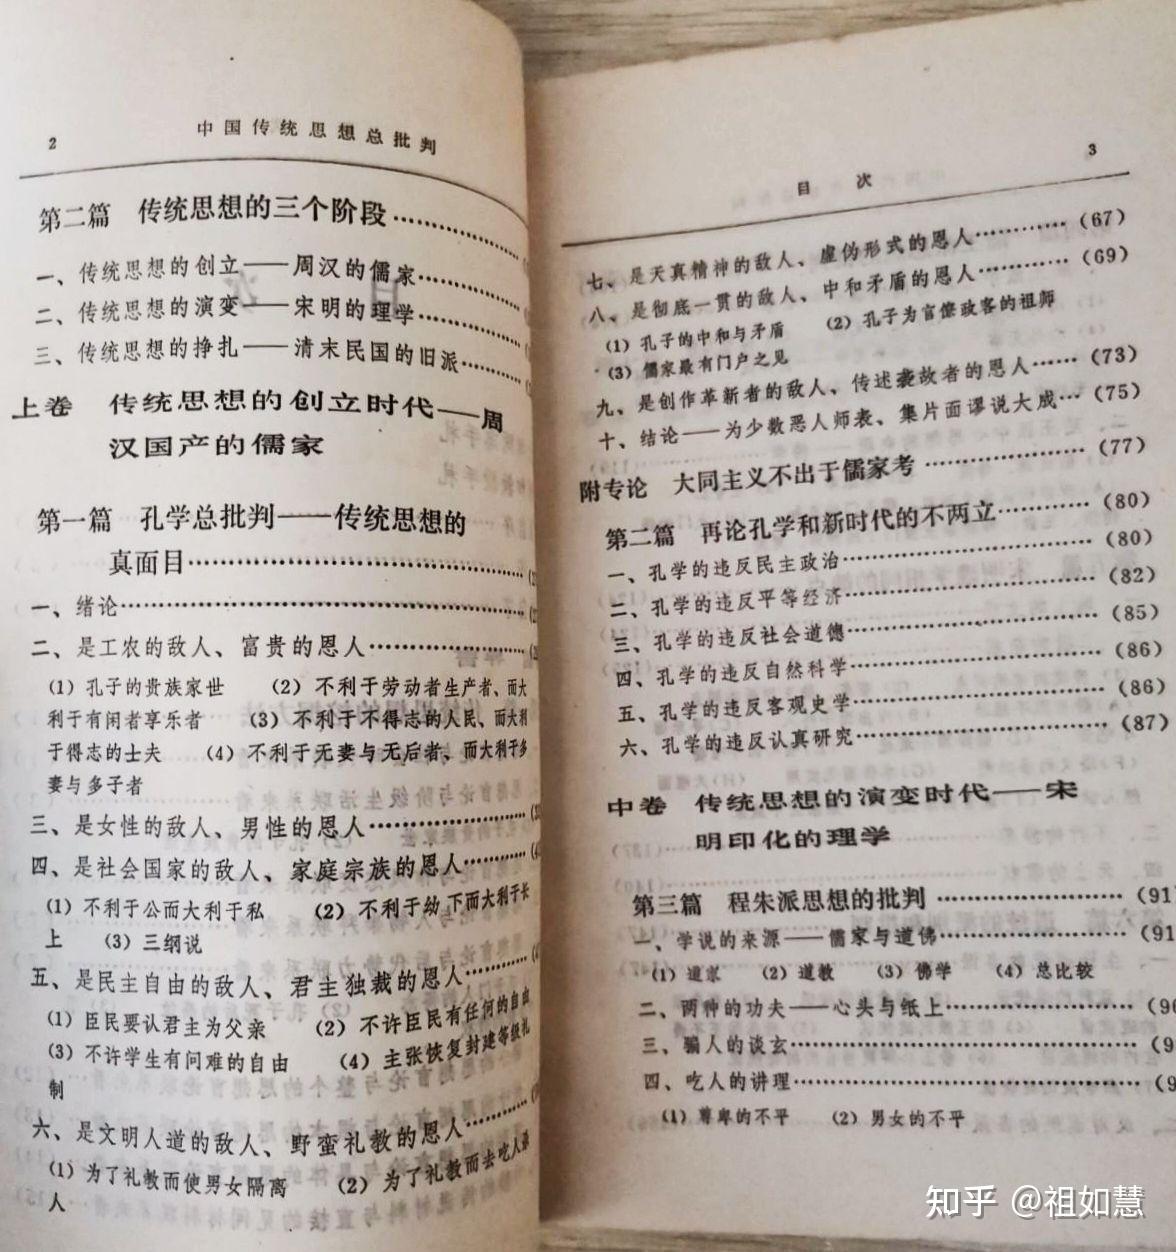 2 中国传统思想总批判
第二篇 传统思想的三个阶段
一、传统思想的创立——周汉的儒家
二、传统思想的演变——宋明的理学
三、传统思想的挣扎——清末民国的旧派
上卷 传统思想的创立时代——周
汉国产的儒家
第一篇 孔学总批判——传统思想的
真面目
一、绪论
二、是工农的敌人、富贵的恩人
(1) 孔子的贵族家世 (2) 不利于劳动者生产者、而大
利于有闲者享乐者 (3) 不利于不得志的人民、而大利
于得志的士夫 (4) 不利于无妻与无后者、而大利于多
妻与多子者
三、是女性的敌人、男性的恩人
四、是社会国家的敌人、家庭宗族的恩人
(1) 不利于公而大利于私 (2) 不利于幼下而大利于长
上 (3) 三纲说
五、是民主自由的敌人、君主独裁的恩人
(1) 臣民要认君主为父亲 (2) 不许臣民有任何的自由
(3) 不许学生有问难的自由 (4) 主张恢复封建等级礼
制
六、是文明人道的敌人、野蛮礼教的恩人
(1) 为了礼教而使男女隔离 (2) 为了礼教而去吃人杀
人
目次 3
七、是天真精神的敌人、虚伪形式的恩人…………(67)
八、是彻底一贯的敌人、中和矛盾的恩人…………(69)
(1) 孔子的中和与矛盾 (2) 孔子为官僚政客的祖师
(3) 儒家最有门户之见
九、是创作革新者的敌人、传述袭故者的恩人……(73)
十、结论——为少数恶人师表、集片面谬说大成…(75)
附专论 大同主义不出于儒家考…………………(77)
第二篇 再论孔学和新时代的不两立…………(80)
一、孔学的违反民主政治…………………………(80)
二、孔学的违反平等经济…………………………(82)
三、孔学的违反社会道德…………………………(85)
四、孔学的违反自然科学…………………………(86)
五、孔学的违反客观史学…………………………(86)
六、孔学的违反认真研究…………………………(87)
中卷 传统思想的演变时代——宋
明印化的理学
第三篇 程朱派思想的批判…………………(91
一、学说的来源——儒家与道佛…………………(91
(1) 道家 (2) 道教 (3) 佛学 (4) 总比较
二、两种的功夫——心头与纸上
三、骗人的谈玄
四、吃人的讲理
(1) 尊卑的不平 (2) 男女的不平
知乎 @祖如慧